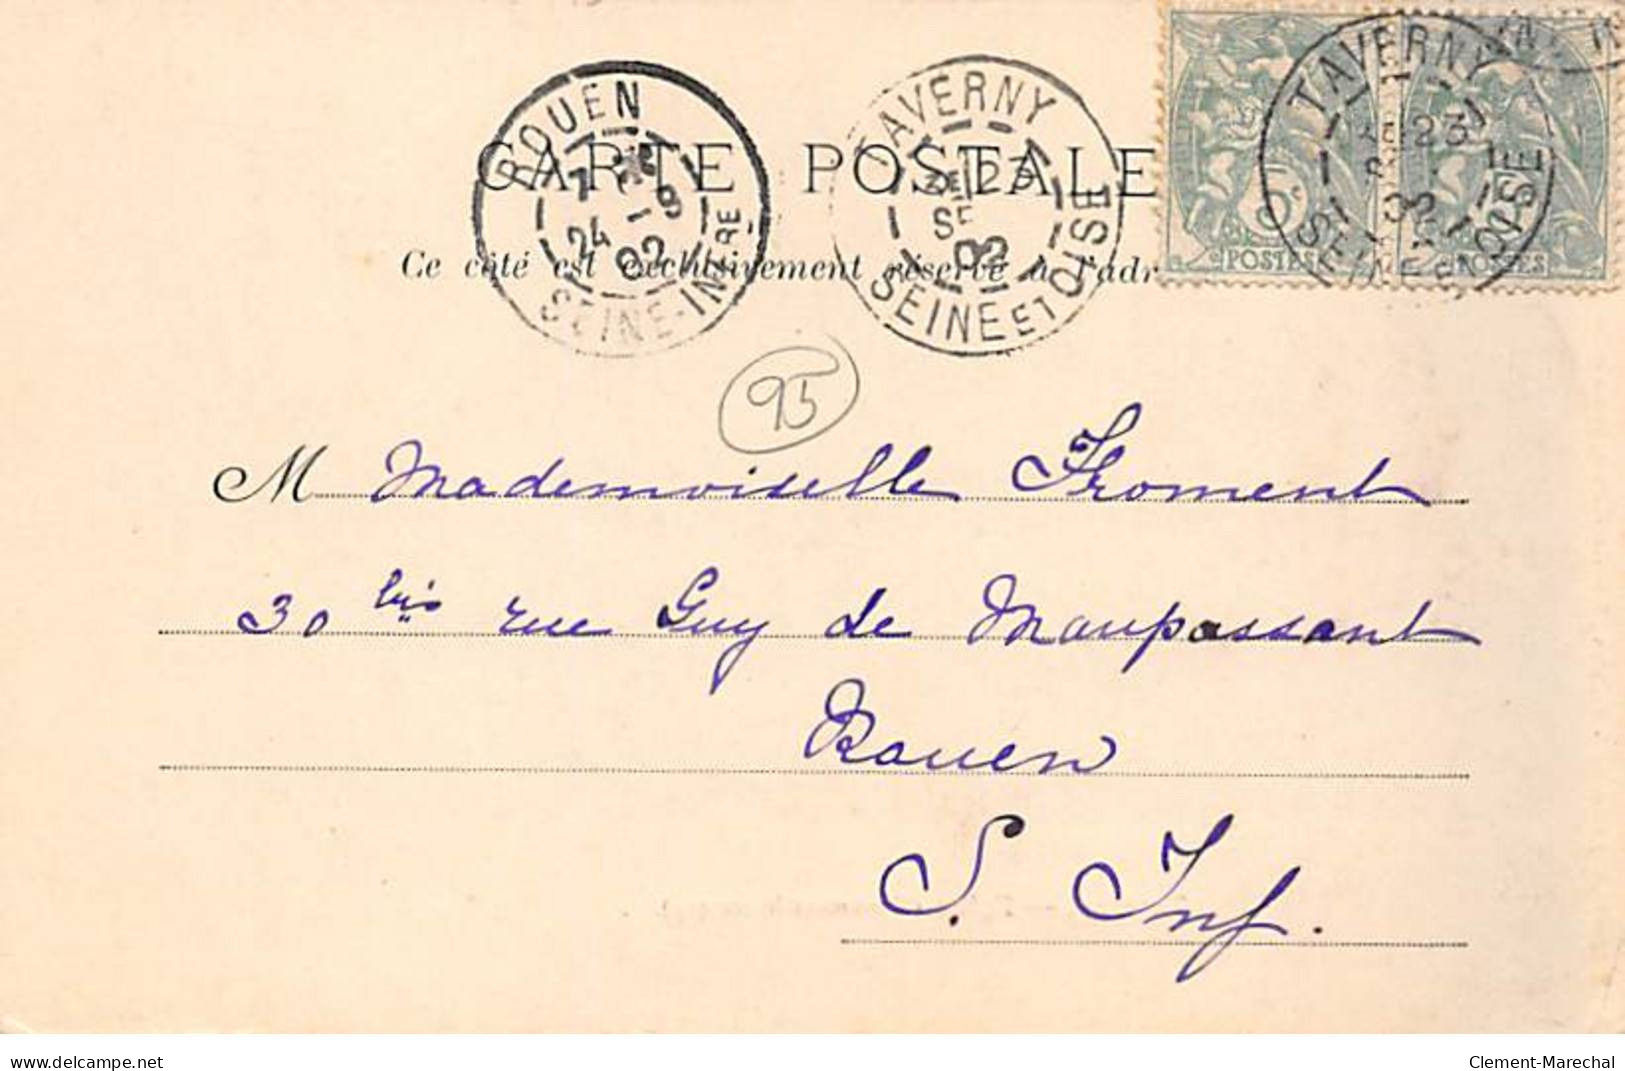 ROUEN
7
24 - 9
02
SEINE-INFRE
TAVERNY
2E 23
SE
02
SEINE ET OISE
TAVERNY
23
SE
02
SEINE ET OISE
5c
POSTES
POSTES
CARTE POSTALE
Ce côté est exclusivement réservé à l'adr
95
M Mademoiselle Froment
30 bis rue Guy de Maupassant
Rouen
S. Inf.
delcampe.net
Clement-Marechal